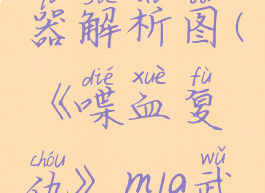 器解析图(
dié xuè fù
《喋血复
chóu wǔ
仇》m1a武